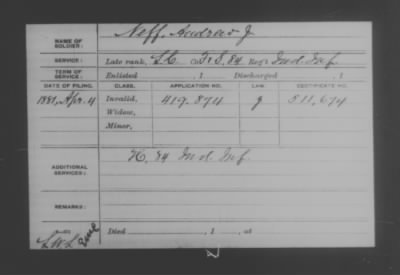 Neff, Andrew J.
NAME OF SOLDIER:
SERVICE:
Late rank, L.C. Co. F. & S., 84 Reg't Ind. Inf.
TERM OF SERVICE:
Enlisted , 1 Discharged , 1
DATE OF FILING. CLASS. APPLICATION NO. LAW. CERTIFICATE NO.
1881, Apr. 4 Invalid, 419.874 511,674
Widow,
Minor,
ADDITIONAL SERVICES:
K, 84 Ind. Inf.
REMARKS:
Died , 1 , at